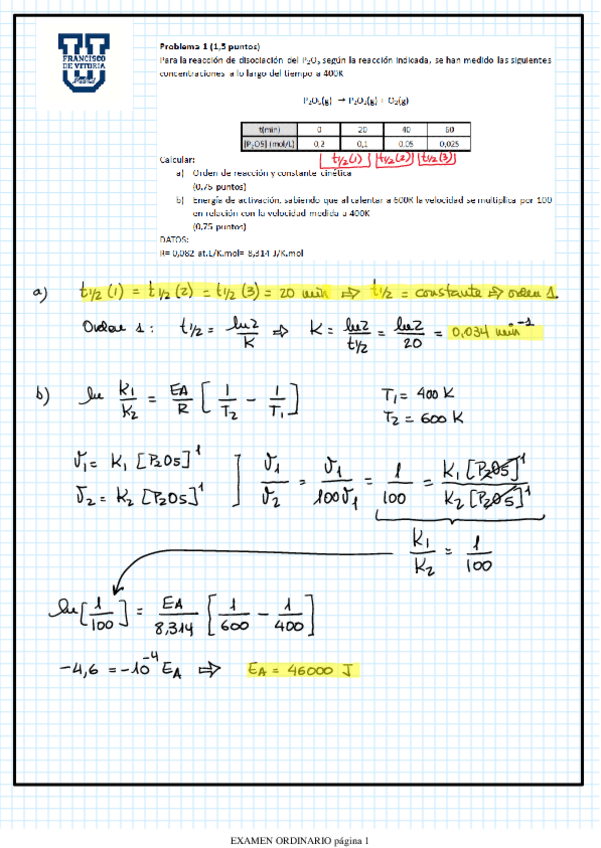 FRANCISCO
DE VITORIA
Problema 1 (1,5 puntos)
Para la reacción de disociación del P₂O₅ según la reacción indicada, se han medido las siguientes
concentraciones a lo largo del tiempo a 400K
P₂O₅(g) → P₂O₃(g) + O₂(g)
t(min) 0 20 40 60
[P2O5] (mol/L) 0,2 0,1 0,05 0,025
t1/2(1) t1/2(2) t1/2(3)
Calcular:
a) Orden de reacción y constante cinética
(0,75 puntos)
b) Energía de activación, sabiendo que al calentar a 600K la velocidad se multiplica por 100
en relación con la velocidad medida a 400K
(0,75 puntos)
DATOS:
R= 0,082 at.L/K.mol= 8,314 J/K.mol
a) t1/2 (1) = t1/2 (2) = t1/2 (3) = 20 min ⇒ t1/2 = constante ⇒ orden 1.
Orden 1: t1/2 = ln2/K ⇒ K = ln2/t1/2 = ln2/20 = 0,034 min⁻¹
b) ln K1/K2 = EA/R [1/T2 - 1/T1] T1 = 400 K
T2 = 600 K
V1 = K1 [P2O5]¹
V2 = K2 [P2O5]¹ ] V1/V2 = V1/100V1 = 1/100 = K1 [P2O5]¹/K2 [P2O5]¹
K1/K2 = 1/100
ln [1/100] = EA/8,314 [1/600 - 1/400]
-4,6 = -10⁻⁴ EA ⇒ EA = 46000 J
EXAMEN ORDINARIO página 1